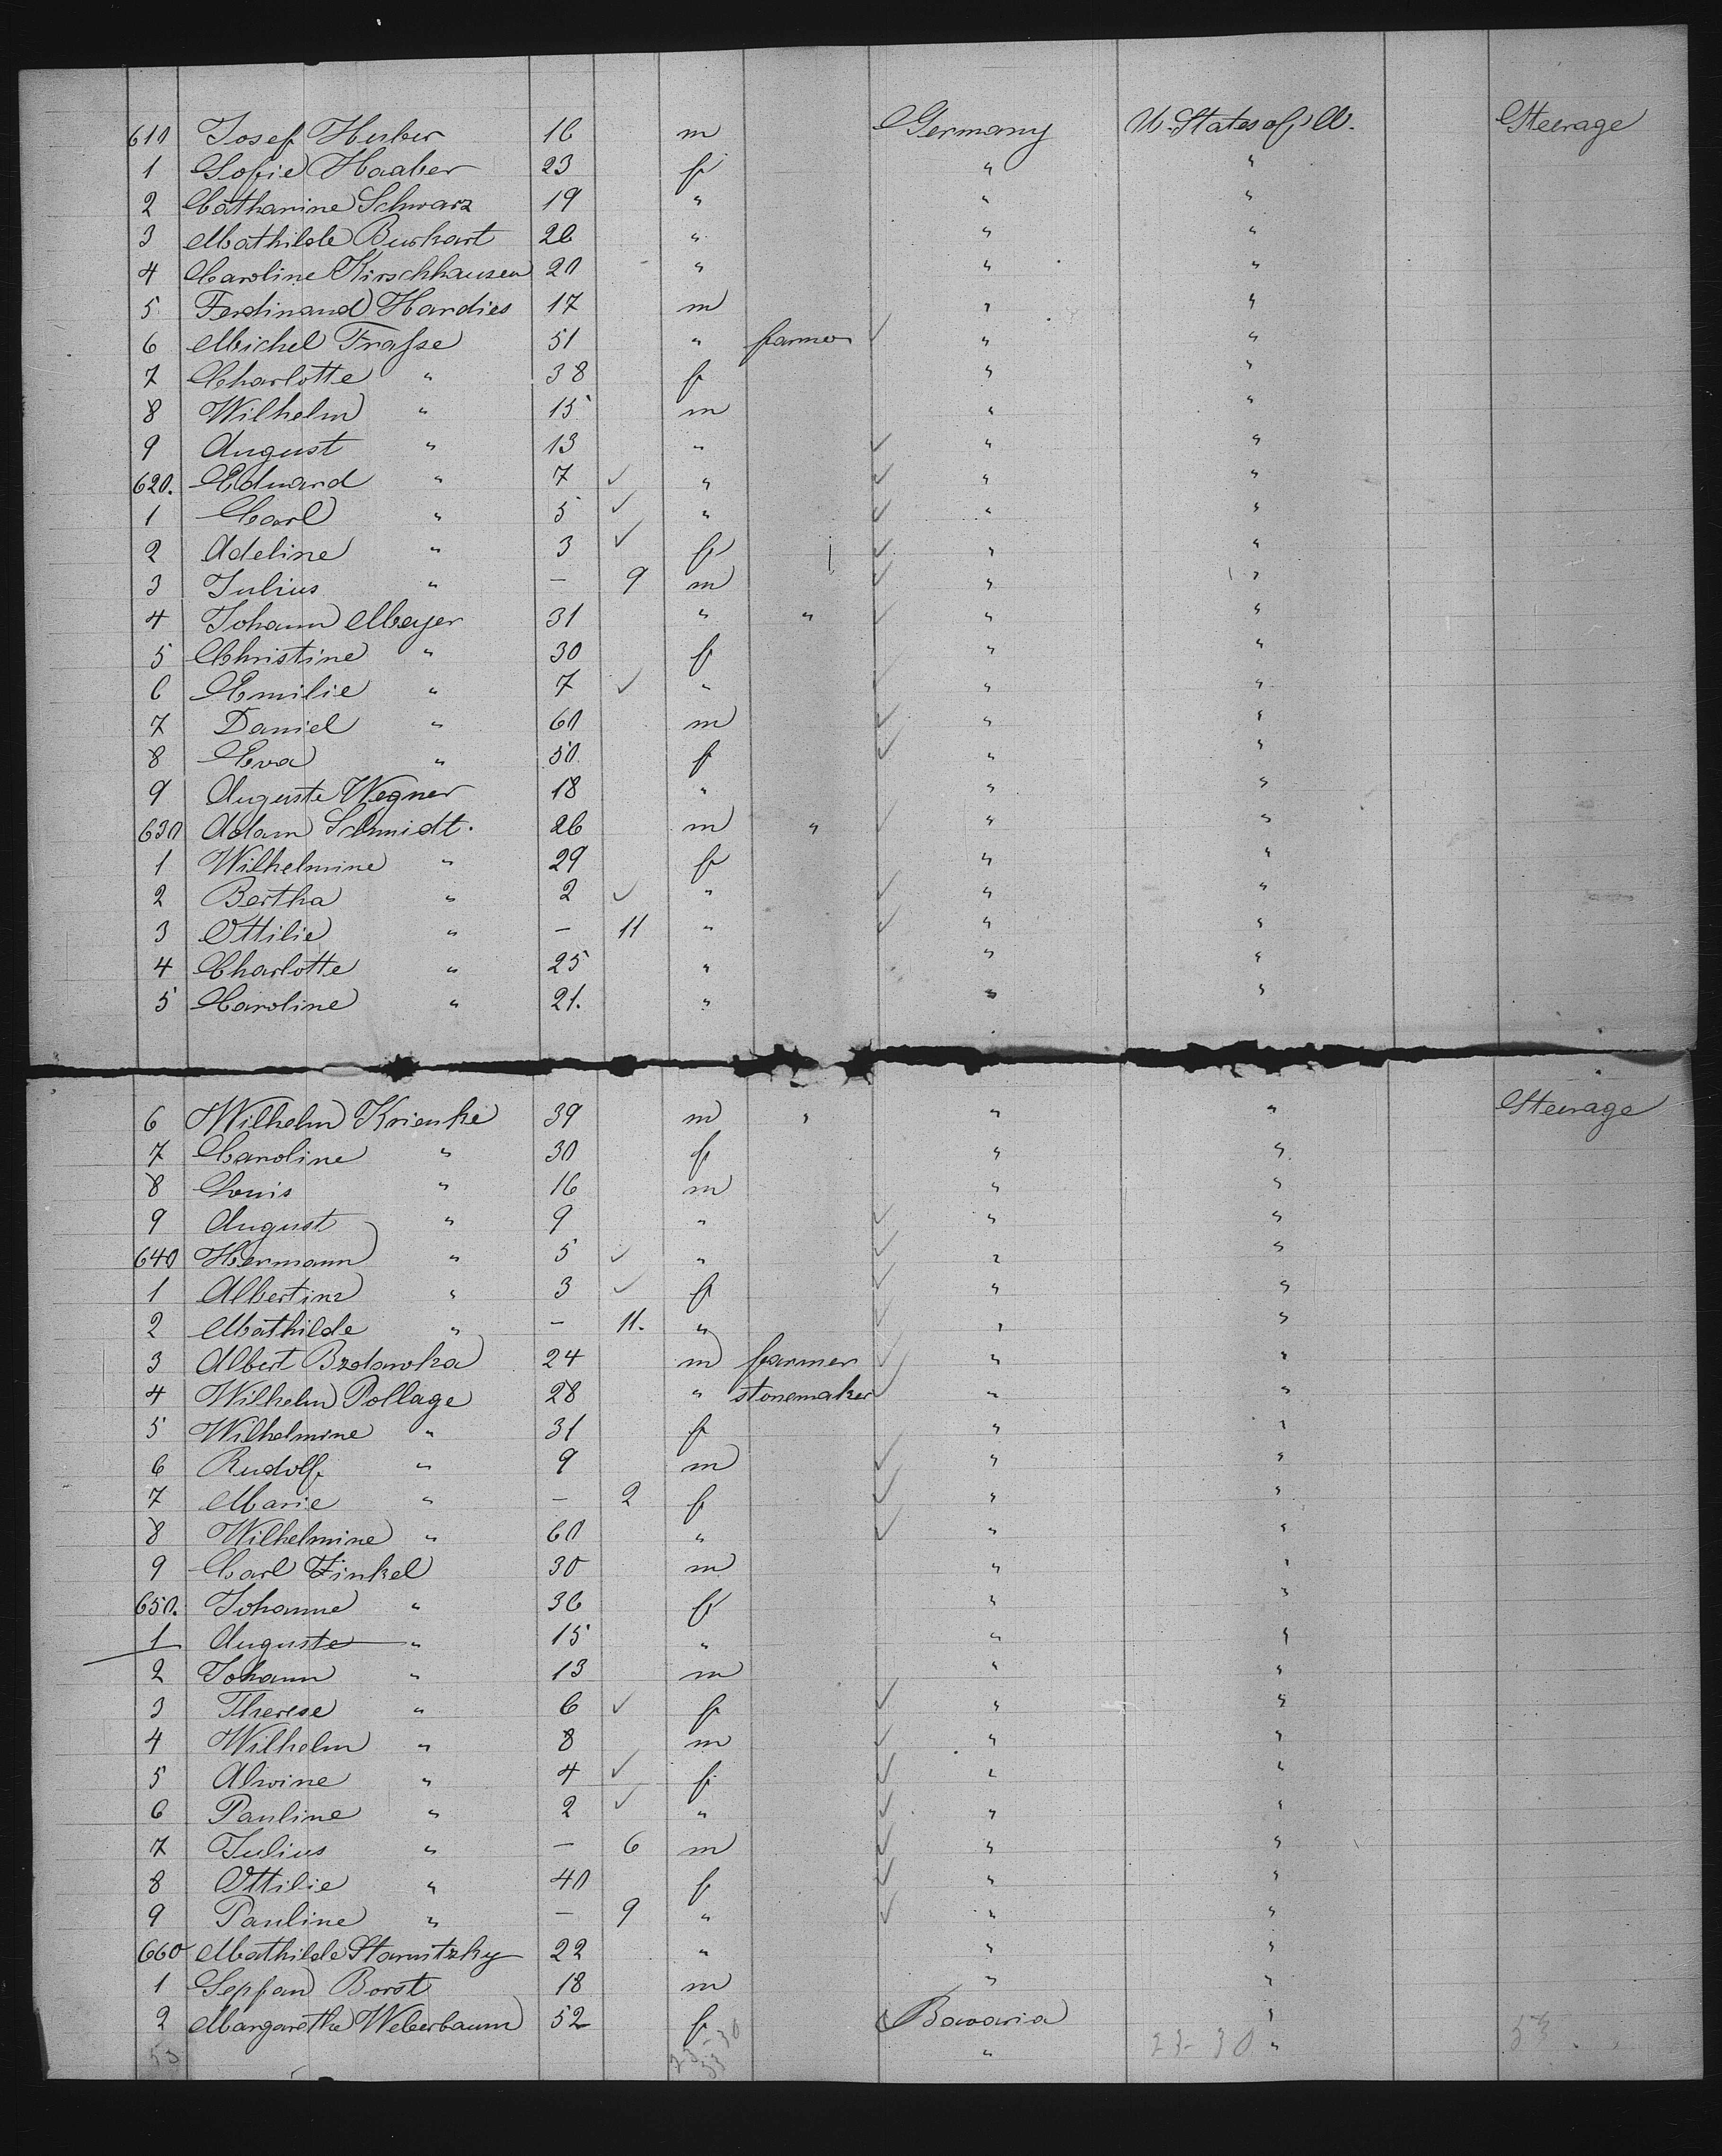 610 Josef Huber 16 m Germany U. States of A. Steerage
1 Sofie Haaber 23 f " "
2 Catharine Schwarz 19 " " "
3 Mathilde Burkart 26 " " "
4 Caroline Kirschhausen 20 " " "
5 Ferdinand Hardies 17 m " "
6 Michel Frasse 51 " farmer ✓ " "
7 Charlotte " 38 f " "
8 Wilhelm " 15 m " "
9 August " 13 " ✓ " "
620. Eduard " 7 ✓ " ✓ " "
1 Carl " 5 ✓ " ✓ " "
2 Adeline " 3 ✓ f ✓ " "
3 Julius " — 9 m ✓ " "
4 Johann Meyer 31 " " ✓ " "
5 Christine " 30 f " "
6 Emilie " 7 ✓ " ✓ " "
7 Daniel " 60 m ✓ " "
8 Eva " 50. f ✓ " "
9 Auguste Wegner 18 " " "
630 Adam Schmidt. 26 m " ✓ " "
1 Wilhelmine " 29 f " "
2 Bertha " 2 ✓ " ✓ " "
3 Ottilie " — 11 " ✓ " "
4 Charlotte " 25 " " "
5 Caroline " 21. " " "
6 Wilhelm Krienke 39 m " " " Steerage
7 Caroline " 30 f " "
8 Louis " 16 m " "
9 August " 9 " ✓ " "
640 Hermann " 5 ✓ " ✓ " "
1 Albertine " 3 ✓ f ✓ " "
2 Mathilde " — 11. " ✓ " "
3 Albert 24 m farmer ✓ " "
4 Wilhelm Pollage 28 " stonemaker ✓ " "
5 Wilhelmine " 31 f " "
6 Rudolf " 9 m ✓ " "
7 Marie " — 2 f ✓ " "
8 Wilhelmine " 60 " ✓ " "
9 Carl Zinkel 30 m " "
650. Johanne " 36 f " "
1 Auguste " 15 " " "
2 Johann " 13 m " "
3 Therese " 6 ✓ f ✓ " "
4 Wilhelm " 8 m ✓ " "
5 Alwine " 4 ✓ f ✓ " "
6 Pauline " 2 ✓ " ✓ " "
7 Julius " — 6 m ✓ " "
8 Ottilie " 40 f ✓ " "
9 Pauline " — 9 " ✓ " "
660 Mathilde 22 " " "
1 Borst 18 m " "
2 Margarethe Weberbaum 52 f Bavaria "
53 " 23-30 "